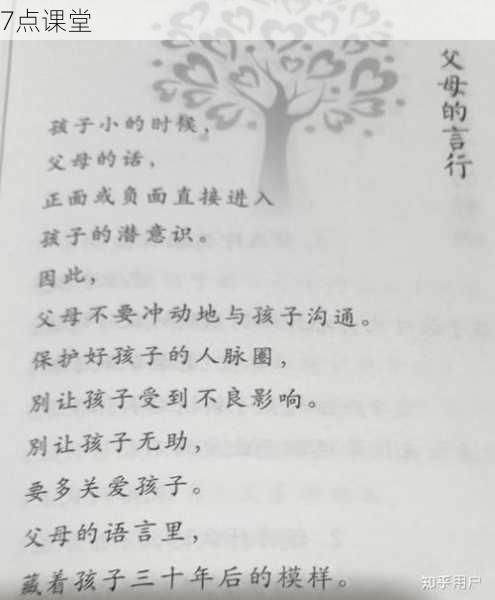 7点课堂
父母的言行
孩子小的时候，
父母的话，
正面或负面直接进入
孩子的潜意识。
因此，
父母不要冲动地与孩子沟通。
保护好孩子的人脉圈，
别让孩子受到不良影响。
别让孩子无助，
要多关爱孩子。
父母的语言里，
藏着孩子三十年后的模样。
知乎用户